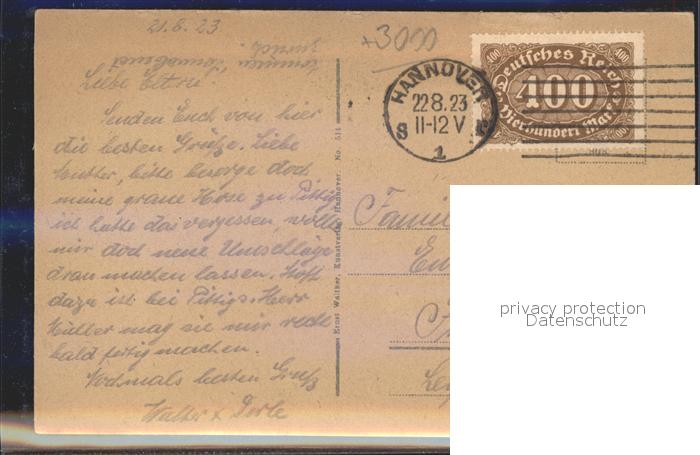 21.8.23
+3000
Liebe Eltern!
Senden Euch von hier
die besten Grüße. Liebe
Mutter, bitte besorge doch
meine graue Hose zu Pittig
ich hatte das vergessen, wollte
mir doch neue Umschläge
dran machen lassen. Stoff
dazu ist bei Pittigs. Herr
Müller mag sie mir recht
bald fertig machen.
Nochmals besten Gruß
Walter & Dorle
Ernst Walter, Kunstverlag, Hannover. No. 514
HANNOVER
22.8.23
11-12 V
8
1
Deutsches Reich
400
400
400
Vierhundert Mark
Famil
privacy protection
Datenschutz